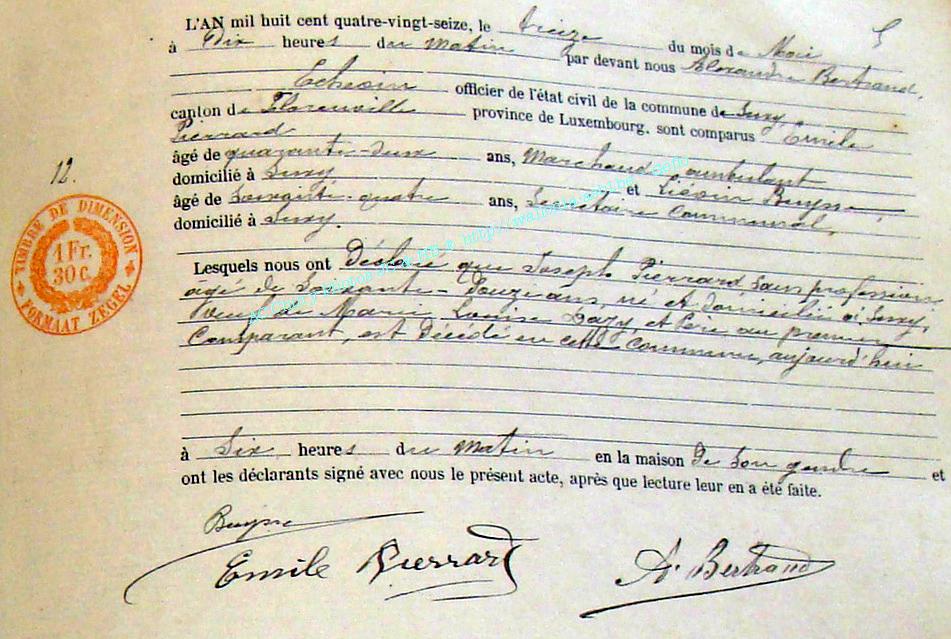 L'AN mil huit cent quatre-vingt-seize, le treize du mois de Mai 5
à Dix heures du matin par devant nous Alexandre Bertrand,
Echevin officier de l'état civil de la commune de Izy,
canton de Florenville province de Luxembourg, sont comparus Emile
Pierrard
âgé de quarante-deux ans, Marchand ambulant
domicilié à Izy et Buysse
âgé de Soixante-quatre ans, Secrétaire Communal,
domicilié à Izy.
12.
TIMBRE DE DIMENSION
1 Fr.
30 c.
FORMAAT ZEGEL
Lesquels nous ont Déclaré que Joseph Pierrard Sans profession
âgé de Soixante-Douze ans, né et domicilié à Izy,
Veuf de Marie Louise Lazy, et Père au premier
Comparant, est Décédé en cette commune, aujourd'hui
à Six heures du matin en la maison de Son gendre et
ont les déclarants signé avec nous le présent acte, après que lecture leur en a été faite.
Buysse
Emile Pierrard A. Bertrand